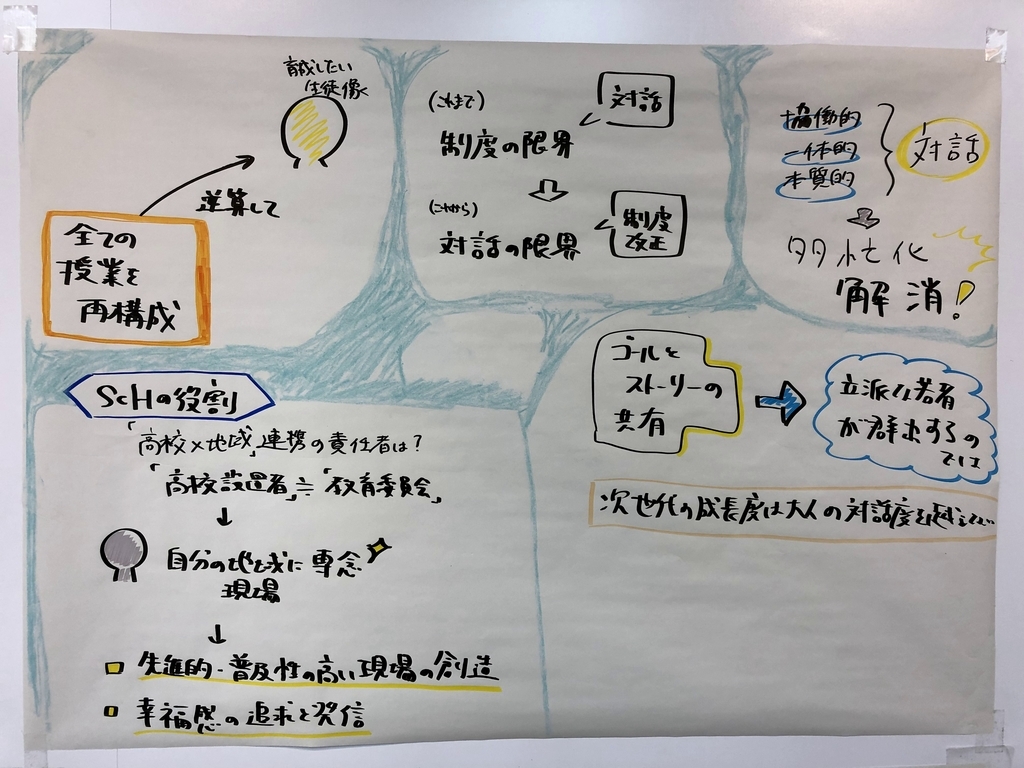 育成したい
生徒像
逆算して
全ての
授業を
再構成
(これまで)
対話
制度の限界
(これから)
制度
改正
対話の限界
協働的
一体的
本質的
対話
多忙化
解消!
ScHの役割
「高校×地域」連携の責任者は?
「高校設置者」≒「教育委員会」
↓
自分の地域に専念
現場
↓
先進的・普及性の高い現場の創造
幸福感の追求と発信
ゴールと
ストーリーの
共有
立派な若者
が群出するの
では
次世代の成長度は大人の対話度を越えない